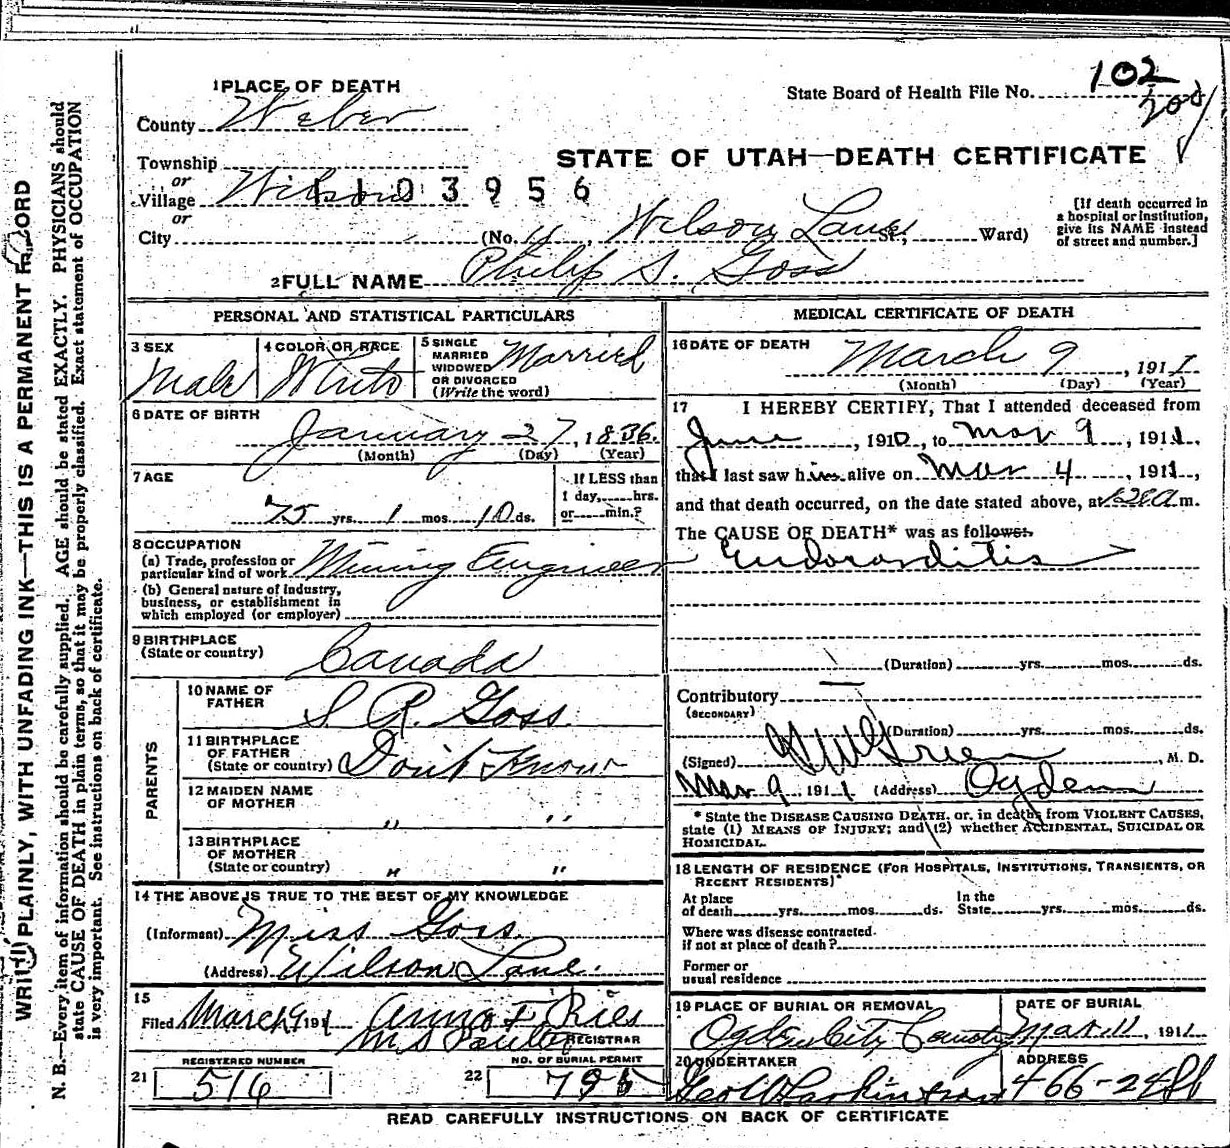 102
State Board of Health File No.
1 PLACE OF DEATH
County Weber
STATE OF UTAH—DEATH CERTIFICATE
Township
or
Village Wilson
1103956
or
City (No. , Wilson Lane St., Ward)
[If death occurred in
a hospital or institution,
give its NAME instead
of street and number.]
2 FULL NAME Philip S. Goss
PERSONAL AND STATISTICAL PARTICULARS
3 SEX
Male
4 COLOR OR RACE
White
5 SINGLE
MARRIED
WIDOWED
OR DIVORCED
(Write the word)
Married
6 DATE OF BIRTH
January 27, 1836.
(Month) (Day) (Year)
7 AGE
75 yrs. 1 mos. 10 ds.
If LESS than
1 day, hrs.
or min.?
8 OCCUPATION
(a) Trade, profession or
particular kind of work Mining Engineer
(b) General nature of industry,
business, or establishment in
which employed (or employer)
9 BIRTHPLACE
(State or country)
Canada
PARENTS
10 NAME OF
FATHER
S R. Goss
11 BIRTHPLACE
OF FATHER
(State or country) Don't Know
12 MAIDEN NAME
OF MOTHER
" "
13 BIRTHPLACE
OF MOTHER
(State or country) " "
14 THE ABOVE IS TRUE TO THE BEST OF MY KNOWLEDGE
(Informant) Miss Goss
(Address) Wilson Lane.
15
Filed March 9 1911 Anna F Ries
REGISTRAR
REGISTERED NUMBER
21 516
NO. OF BURIAL PERMIT
22 795
MEDICAL CERTIFICATE OF DEATH
16 DATE OF DEATH
March 9, 1911
(Month) (Day) (Year)
17 I HEREBY CERTIFY, That I attended deceased from
June, 1910, to Mar 9, 1911,
that I last saw him alive on Mar 4 1911,
and that death occurred, on the date stated above, at m.
The CAUSE OF DEATH* was as follows:
Endocarditis
(Duration) yrs. mos. ds.
Contributory
(SECONDARY)
(Duration) yrs. mos. ds.
(Signed) Green, M. D.
Mar 9 1911 (Address) Ogden
* State the DISEASE CAUSING DEATH, or, in deaths from VIOLENT CAUSES,
state (1) MEANS OF INJURY; and (2) whether ACCIDENTAL, SUICIDAL OR
HOMICIDAL.
18 LENGTH OF RESIDENCE (FOR HOSPITALS, INSTITUTIONS, TRANSIENTS, OR
RECENT RESIDENTS)
At place
of death yrs. mos. ds.
In the
State yrs. mos. ds.
Where was disease contracted.
if not at place of death?
Former or
usual residence
19 PLACE OF BURIAL OR REMOVAL
Ogden City
DATE OF BURIAL
Mar. 11, 1911
20 UNDERTAKER
Geo W Larkin
ADDRESS
466-24 St
READ CAREFULLY INSTRUCTIONS ON BACK OF CERTIFICATE
PLAINLY, WITH UNFADING INK—THIS IS A PERMANENT
N. B.—Every item of information should be carefully supplied. AGE should be stated EXACTLY. PHYSICIANS should
state CAUSE OF DEATH in plain terms, so that it may be properly classified. Exact statement of OCCUPATION
is very important. See instructions on back of certificate.